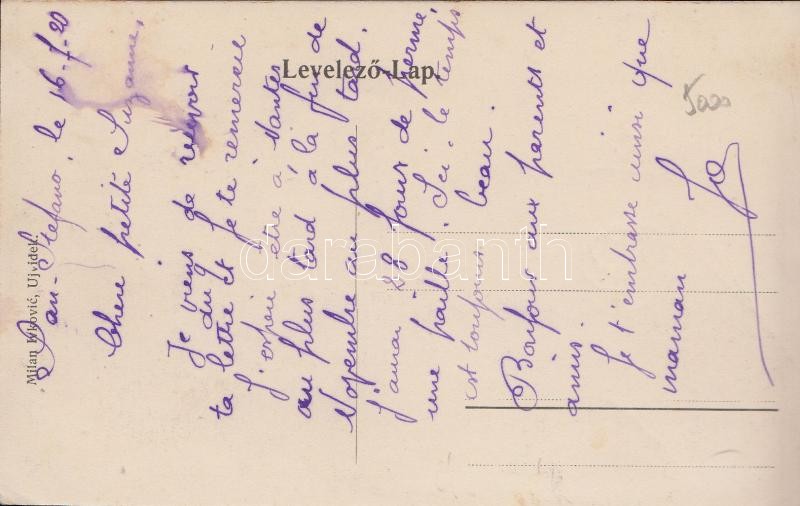 Levelező-Lap.
Milan Ivković, Ujvidek.
San-Stefano, le 16-7-20
Chère petite Suzanne,
Je viens de recevoir
ta lettre du 9 et je te remercie
J'espère être à Nantes
au plus tard à la fin de
Novembre au plus tard.
J'aurai 28 jours de perme,
une paille! Ici le temps
est toujours beau.
Bonjour aux parents et
amis.
Je t'embrasse ainsi que
maman
Jo
5000
darabanth